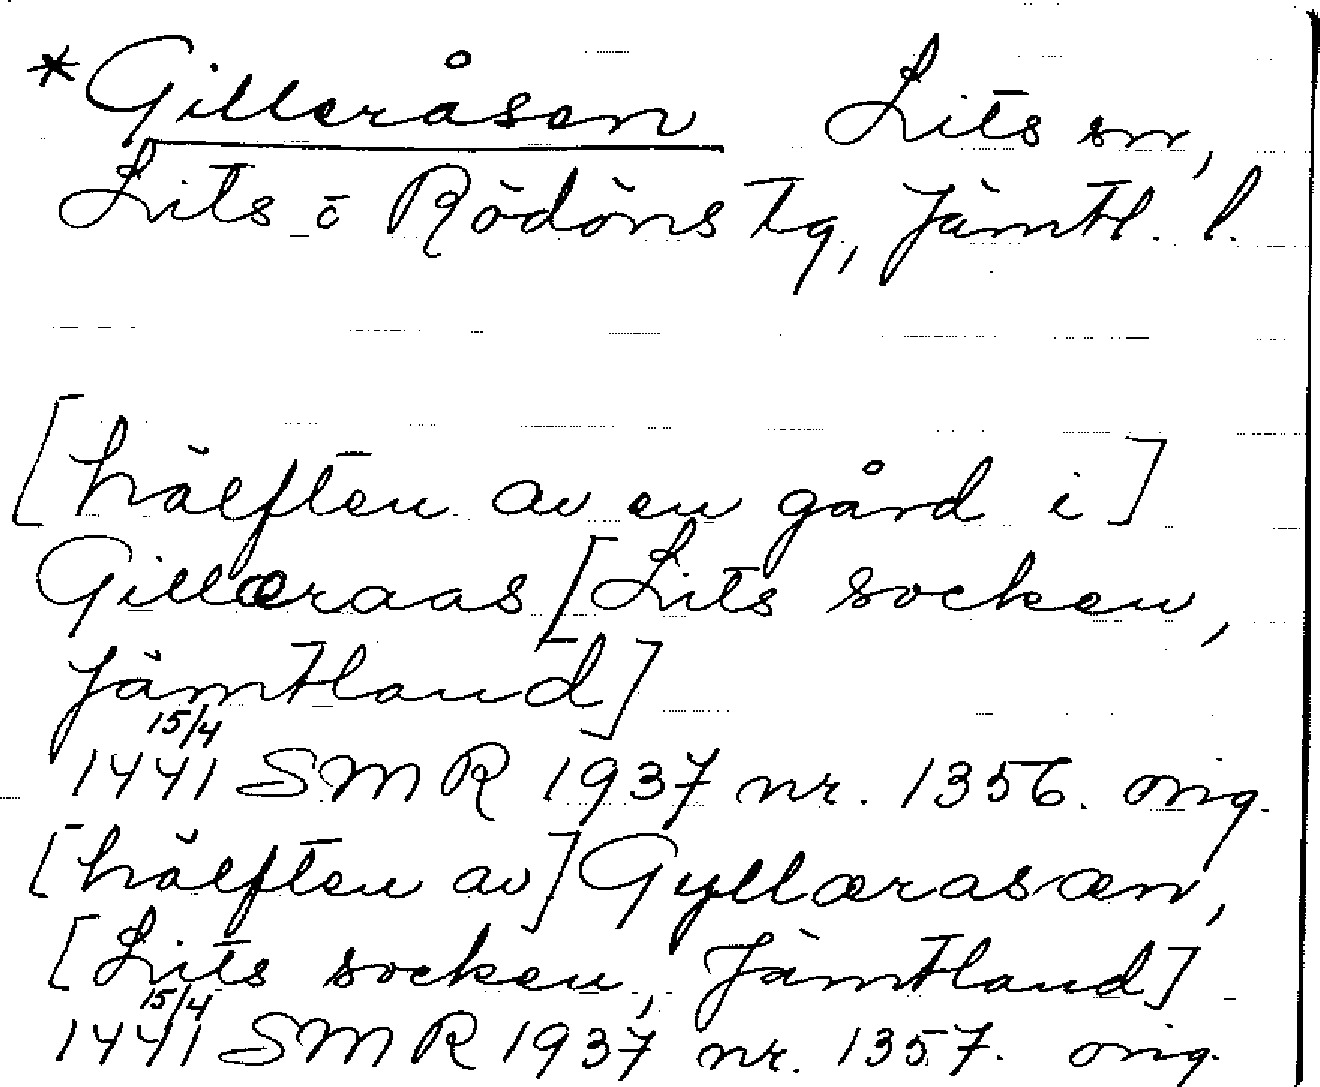 *Gilleråsen Lits sn,
Lits o Rödöns tg, Jämtl. l.
[hälften av en gård i]
Gilläraas [Lits socken,
Jämtland]
15/4
1441 SMR 1937 nr. 1356. orig.
[hälften av] Gyllærasæn,
[Lits socken, Jämtland]
15/4
1441 SMR 1937 nr. 1357. orig.